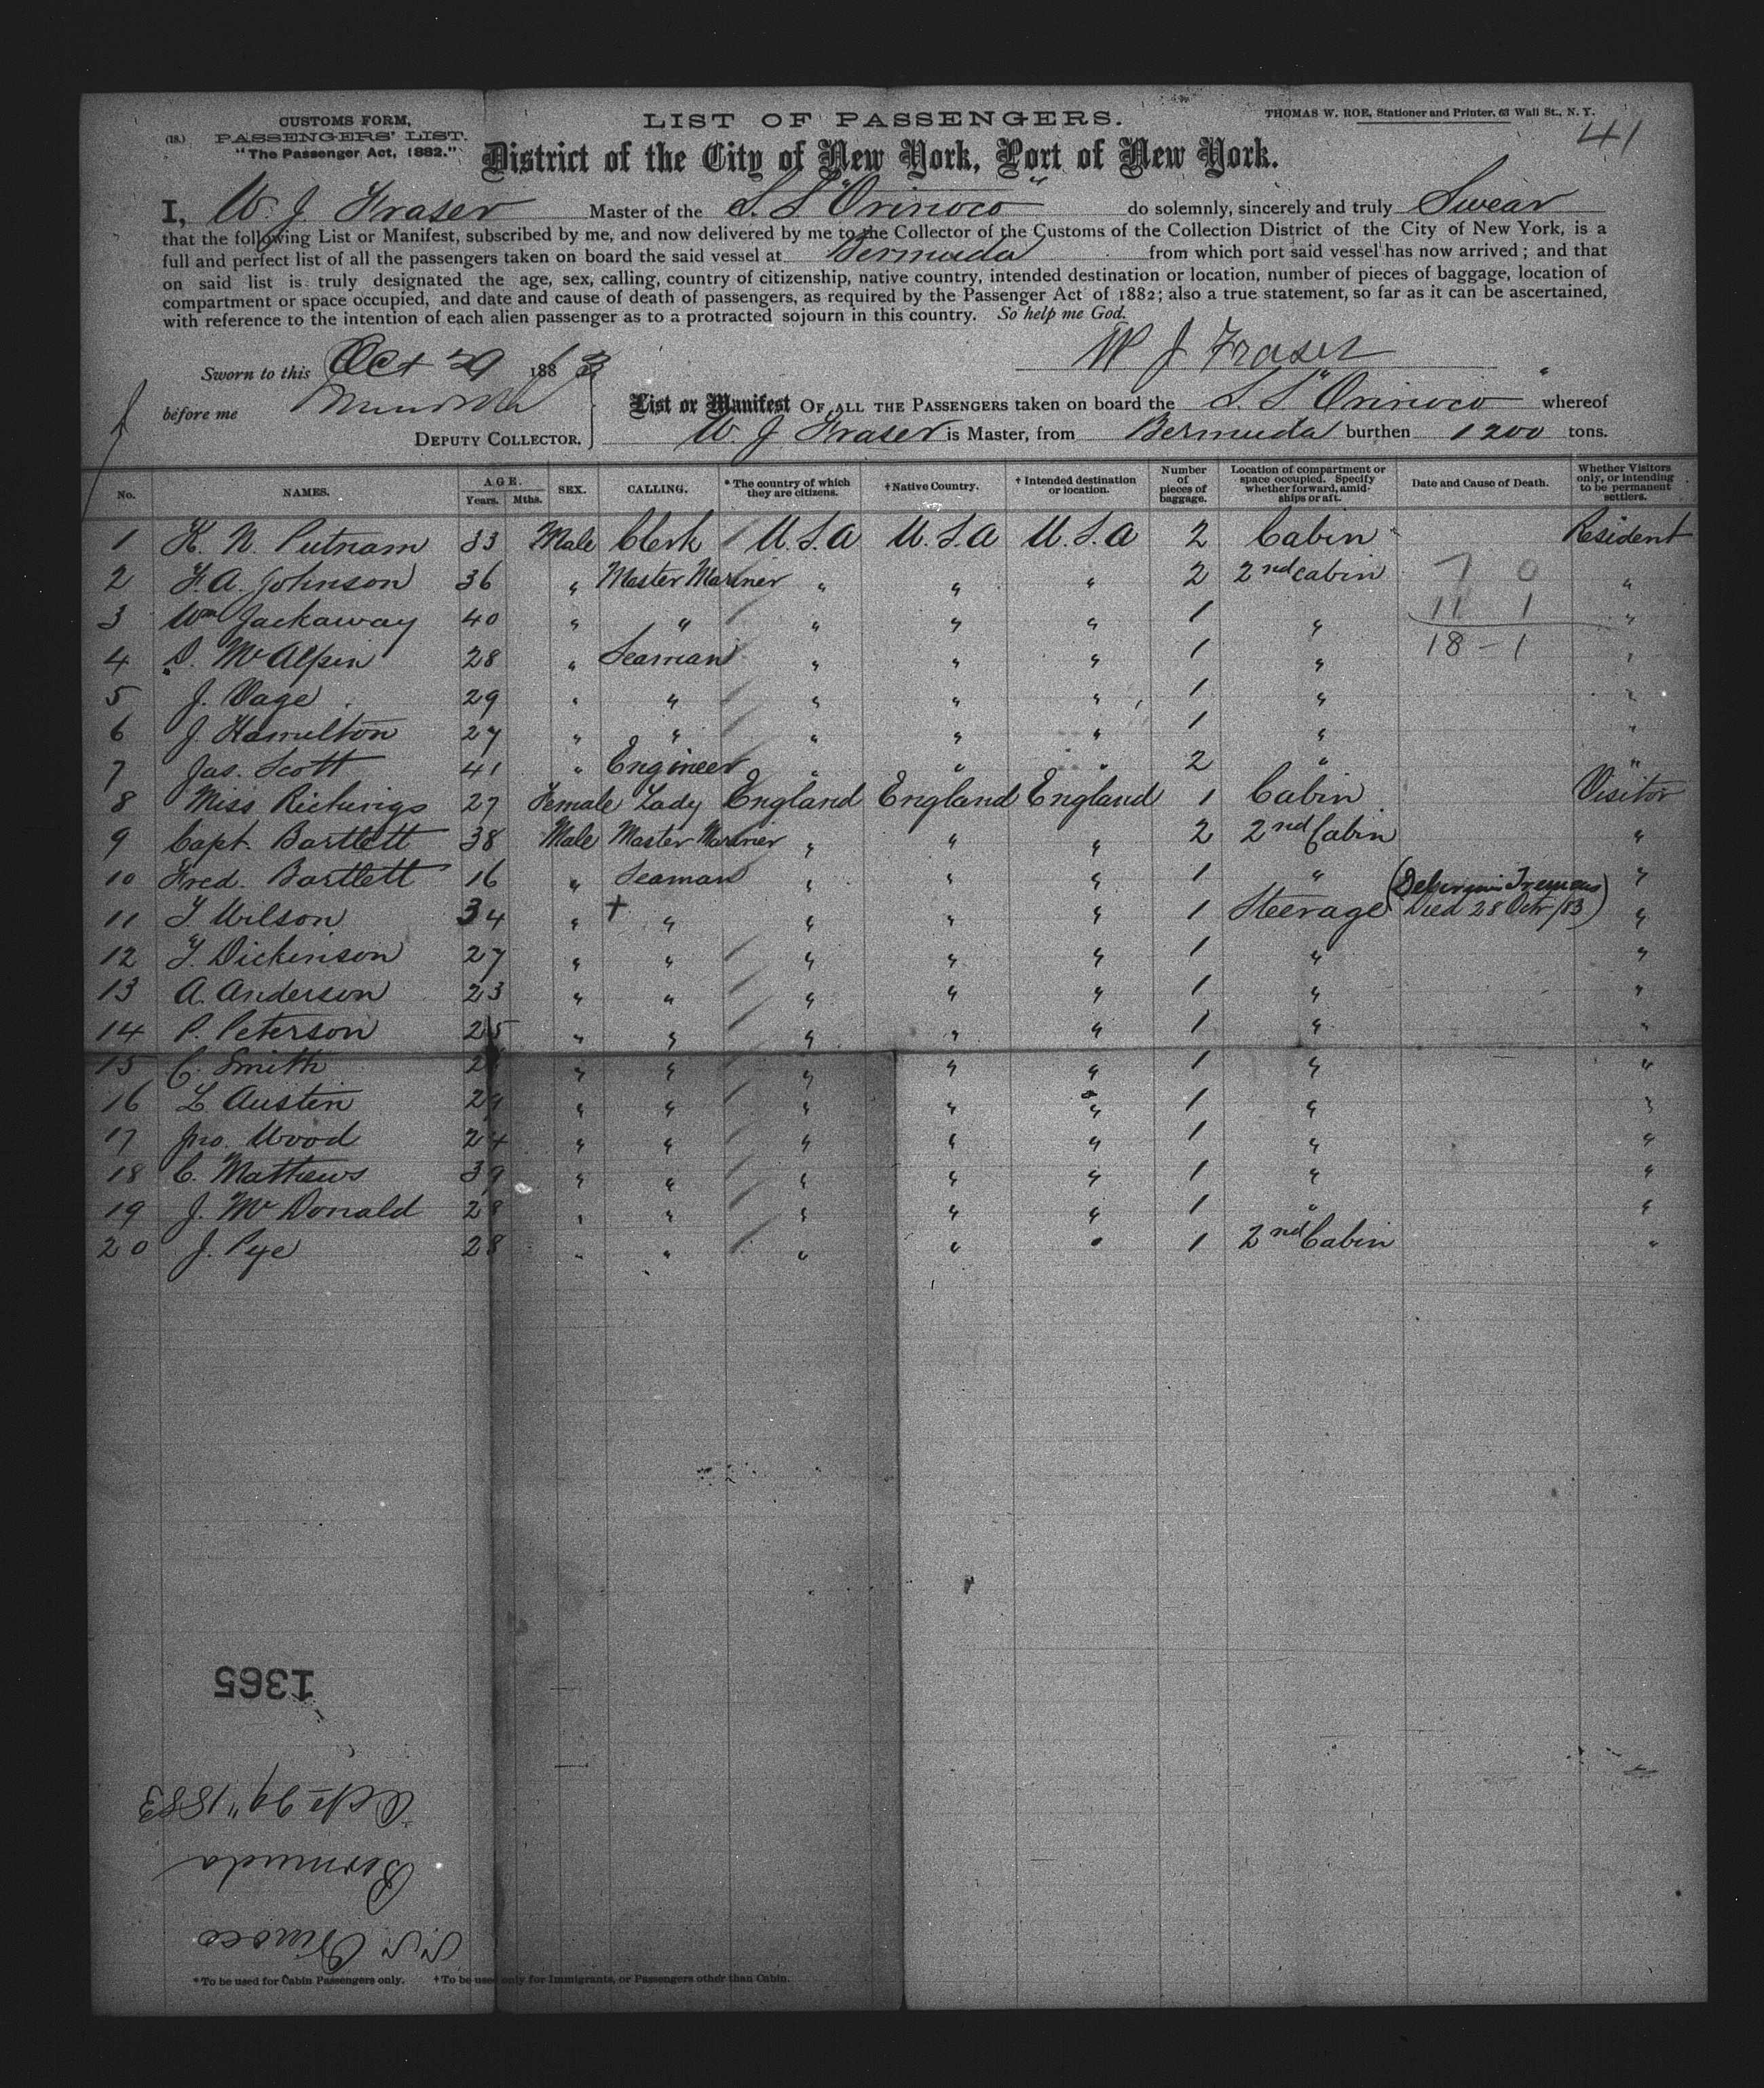 CUSTOMS FORM,
(18.) PASSENGERS' LIST.
"The Passenger Act, 1882."
LIST OF PASSENGERS.
THOMAS W. ROE, Stationer and Printer, 63 Wall St., N. Y.
41
District of the City of New York, Port of New York.
I, W. J. Fraser Master of the S. S. "Orinoco" do solemnly, sincerely and truly Swear
that the following List or Manifest, subscribed by me, and now delivered by me to the Collector of the Customs of the Collection District of the City of New York, is a
full and perfect list of all the passengers taken on board the said vessel at Bermuda from which port said vessel has now arrived; and that
on said list is truly designated the age, sex, calling, country of citizenship, native country, intended destination or location, number of pieces of baggage, location of
compartment or space occupied, and date and cause of death of passengers, as required by the Passenger Act of 1882; also a true statement, so far as it can be ascertained,
with reference to the intention of each alien passenger as to a protracted sojourn in this country. So help me God.
W J Fraser
Sworn to this Oct 29 1883
before me
DEPUTY COLLECTOR.
List or Manifest OF ALL THE PASSENGERS taken on board the S. S. "Orinoco" whereof
W. J. Fraser is Master, from Bermuda burthen 1200 tons.
No. NAMES. AGE. Years. Mths. SEX. CALLING. * The country of which they are citizens. † Native Country. † Intended destination or location. Number of pieces of baggage. Location of compartment or space occupied. Specify whether forward, amidships or aft. Date and Cause of Death. Whether Visitors only, or intending to be permanent settlers.
1 K. N. Putnam 33 Male Clerk U.S.A U.S.A U.S.A 2 Cabin Resident
2 F. A. Johnson 36 " Master Mariner " " " 2 2nd cabin 7 0 "
3 Wm Jackaway 40 " " " " " 1 " 11 1 "
4 D. McAlpin 28 " Seaman " " " 1 " 18 - 1 "
5 J. Vage 29 " " " " " 1 " "
6 J. Hamilton 27 " " " " " 1 " "
7 Jas. Scott 41 " Engineer " " " 2 " "
8 Miss Richings 27 Female Lady England England England 1 Cabin Visitor
9 Capt. Bartlett 38 Male Master Mariner " " " 2 2nd Cabin "
10 Fred. Bartlett 16 " Seaman " " " 1 " "
11 T. Wilson 34 " † " " " " 1 Steerage (Delirium Tremens Died 28 Octr /83) "
12 T. Dickinson 27 " " " " " 1 " "
13 A. Anderson 23 " " " " " 1 " "
14 P. Peterson 25 " " " " " 1 " "
15 C. Smith " " " " " 1 " "
16 L Austin 29 " " " " " 1 " "
17 Jno. Wood 24 " " " " " 1 " "
18 C. Mathews 39 " " " " " 1 " "
19 J. McDonald 28 " " " " " 1 " "
20 J. Pye 28 " " " " " 1 2nd Cabin "
1365
S.S. Orinoco
Bermuda
Octr 29" 1883
* To be used for Cabin Passengers only. † To be used only for Immigrants, or Passengers other than Cabin.